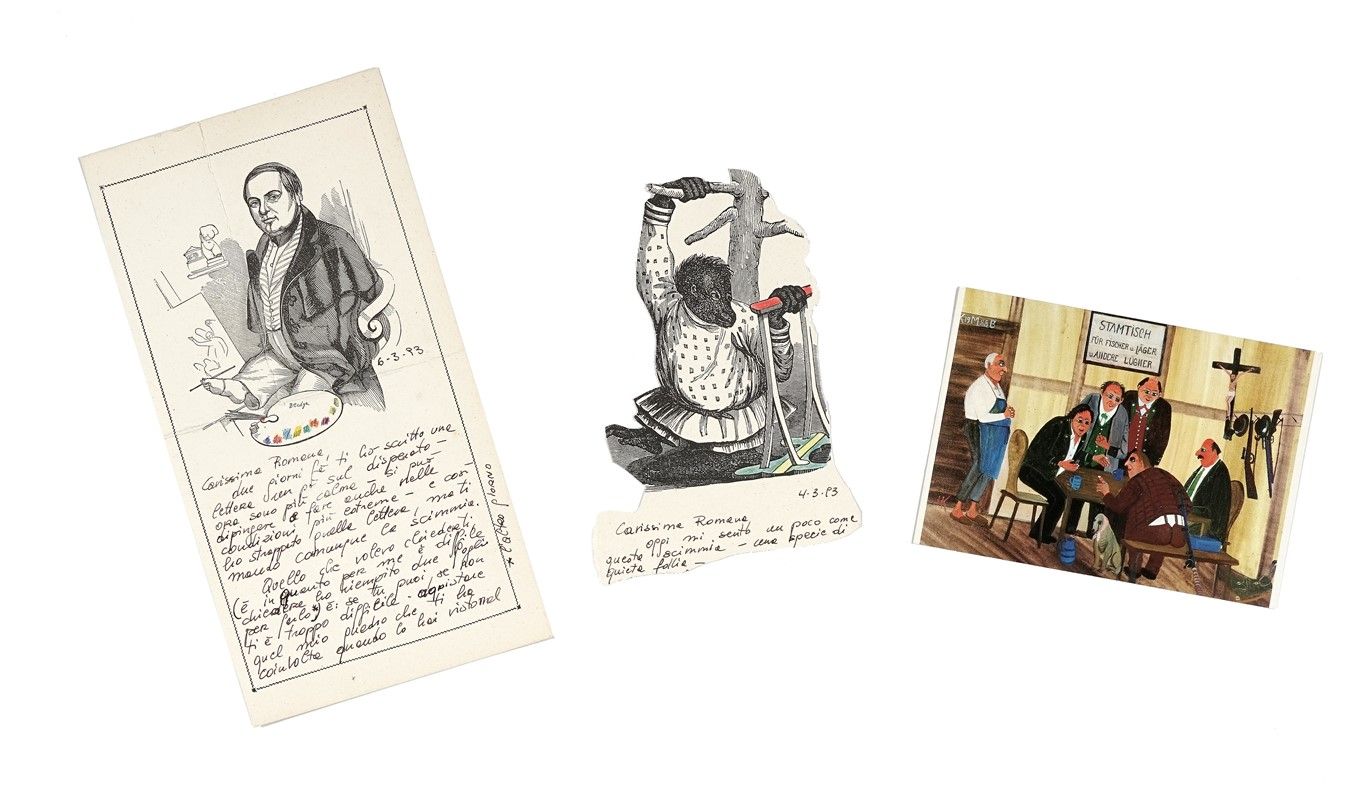 6-3-93
Carissima Romana,
due giorni fà, ti ho scritto una
lettera ben pò sul disperato -
ora sono più calmo - Si può
dipingere e fare anche nelle
condizioni più estreme - e così
ho strappato quella lettera, ma ti
mando comunque la scimmia.
Quello che volevo chiederti.
(è in quanto per me è difficile
chiedere ho riempito due fogli
per farlo*) è: se tu puoi, se non
ti è troppo difficile - acquistare
quel mio quadro che ti ha
coinvolta quando lo hai visto nel
* l'altro giorno
4-3-93
Carissima Romana
oggi mi sento un poco come
questa scimmia - una specie di
quieta follia -
STAMTISCH
FÜR FISCHER u. JÄGER
u. ANDERE LÜGNER